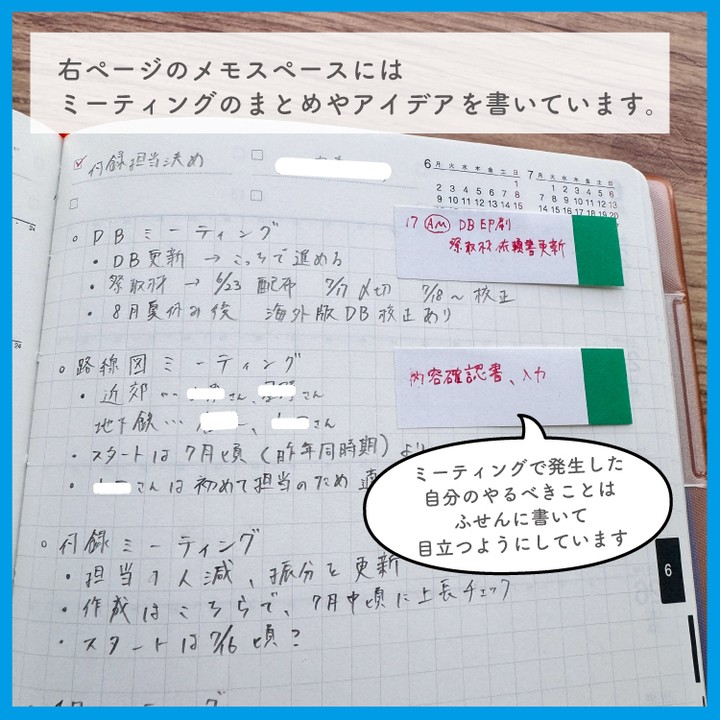 右ページのメモスペースには
ミーティングのまとめやアイデアを書いています。
付録担当決め
6 月 火 水 木 金 土 日
1
2 3 4 5 6 7 8
9 10 11 12 13 14 15
7 月 火 水 木 金 土 日
1 2 3 4 5 6
7 8 9 10 11 12 13
14 15 16 17 18 19 20
17 AM DB印刷
祭取材依頼書更新
。DBミーティング
・DB更新 → こっちで進める
・祭取材 → 6/23 配布 7/17 〆切 7/18〜 校正
・8月夏休み後 海外版DB校正あり
。路線図ミーティング
・近郊… さん、さん
地下鉄… 、さん
・スタートは7月頃(昨年同時期)より
・さんは初めて担当のため
内容確認書、入力
ミーティングで発生した
自分のやるべきことは
ふせんに書いて
目立つようにしています
。付録ミーティング
・担当1人減、振分を更新
・作成はこちらで、7月中頃に上長チェック
・スタートは7/16頃?
6